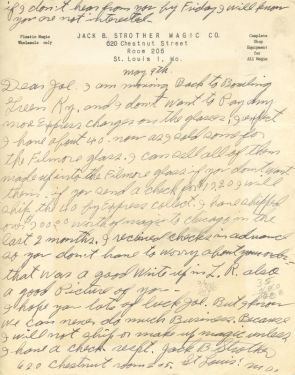 if I don't hear from you by Friday I will know
you are not interested.
Plastic Magic
Wholesale only
JACK B. STROTHER MAGIC CO.
620 Chestnut Street
Room 205
St. Louis 1, Mo.
Complete
Shop
Equipment
for
All Magic
May 9th.
Dear Joe. I am moving Back to Bowling
Green Ky. and I don't want to Pay any
more Express charges on the glasses, I expect
I have about 40. now as I sold some for
the Filmore glass. I can sell all of them
made up into the Filmore glass if you don't want
them. if you send a check for $17.20 I will
ship the 40 by Express collect. I have shipped
worth of magic to Chicago in the
last 2 months. I recieved checks in advance
so you don't have to worry about your
that was a good write up in L. R. also
a good Picture of you -
I hope you lots of luck Joe. But I know
we can never do much Business. Because
I will not ship or make up magic unless
I have a check recpt. Jack B. Strother
620 Chestnut room 205. St Louis. Mo.